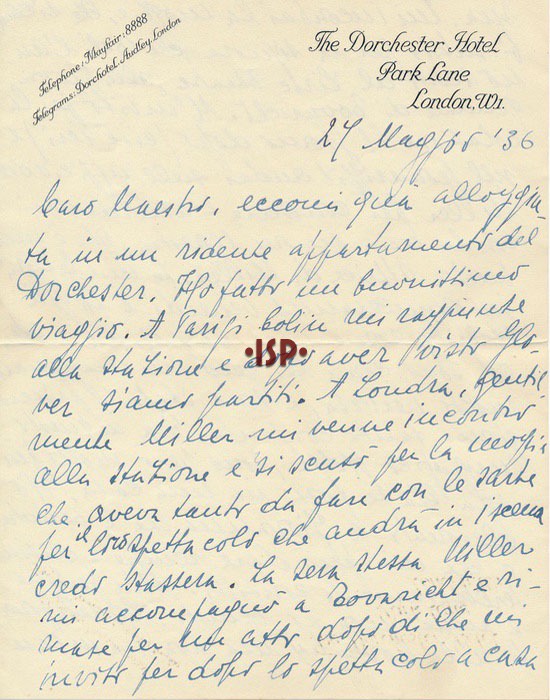 Telephone: Mayfair: 8888
Telegrams: Dorchotel, Audley, London
The Dorchester Hotel
Park Lane
London, W1.
27 Maggio '36
Caro Maestro, eccomi quà alloggia-
ta in un ridente appartamento del
Dorchester. Ho fatto un buonissimo
viaggio. A Parigi Colin mi raggiunte
alla stazione e dopo aver visto Glo-
ver siamo partiti. A Londra, gentil-
mente Miller mi venne incontro
alla stazione e si scusò per la moglie
che aveva tanto da fare con le sarte
per il loro spettacolo che andrà in scena
credo stassera. La sera stessa Miller
mi accompagnò a Tovaricht e ri-
mase per un atto dopo di che mi
invitò per dopo lo spettacolo a casa
ISP